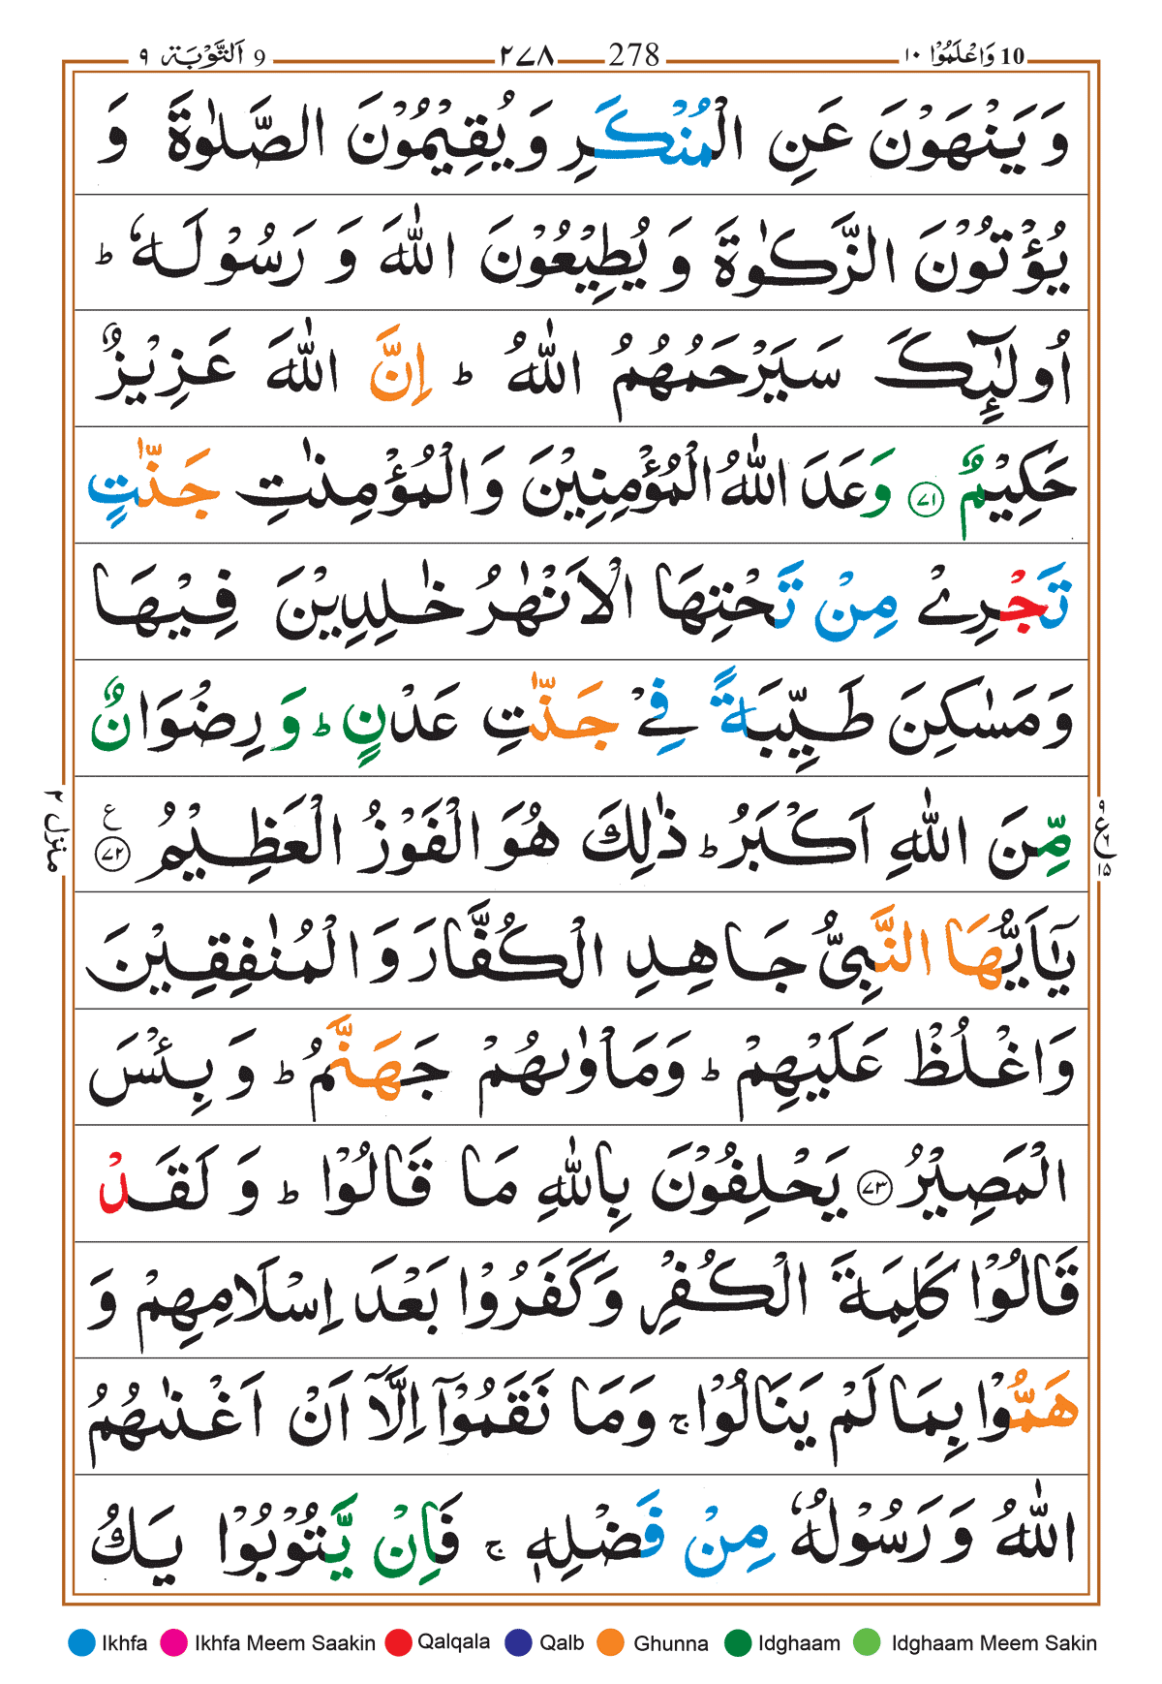 10 وَاعْلَمُوْۤا ١٠ 278 ٢٧٨ 9 اَلتَّوْبَة ٩
وَ يَنْهَوْنَ عَنِ الْمُنْكَرِ وَ يُقِيْمُوْنَ الصَّلٰوةَ وَ
يُؤْتُوْنَ الزَّكٰوةَ وَ يُطِيْعُوْنَ اللّٰهَ وَ رَسُوْلَهٗ ؕ
اُولٰٓئِكَ سَيَرْحَمُهُمُ اللّٰهُ ؕ اِنَّ اللّٰهَ عَزِيْزٌ
حَكِيْمٌ ﴿٧١﴾ وَعَدَ اللّٰهُ الْمُؤْمِنِيْنَ وَالْمُؤْمِنٰتِ جَنّٰتٍ
تَجْرِیْ مِنْ تَحْتِهَا الْاَنْهٰرُ خٰلِدِيْنَ فِيْهَا
وَمَسٰكِنَ طَيِّبَةً فِیْ جَنّٰتِ عَدْنٍ ؕ وَ رِضْوَانٌ
مِّنَ اللّٰهِ اَكْبَرُ ؕ ذٰلِكَ هُوَ الْفَوْزُ الْعَظِيْمُ ﴿٧٢﴾ ع
يٰۤاَيُّهَا النَّبِیُّ جَاهِدِ الْكُفَّارَ وَ الْمُنٰفِقِيْنَ
وَاغْلُظْ عَلَيْهِمْ ؕ وَمَاْوٰىهُمْ جَهَنَّمُ ؕ وَ بِئْسَ
الْمَصِيْرُ ﴿٧٣﴾ يَحْلِفُوْنَ بِاللّٰهِ مَا قَالُوْا ؕ وَ لَقَدْ
قَالُوْا كَلِمَةَ الْكُفْرِ وَكَفَرُوْا بَعْدَ اِسْلَامِهِمْ وَ
هَمُّوْا بِمَا لَمْ يَنَالُوْا ۚ وَمَا نَقَمُوْۤا اِلَّاۤ اَنْ اَغْنٰىهُمُ
اللّٰهُ وَ رَسُوْلُهٗ مِنْ فَضْلِهٖ ۚ فَاِنْ يَّتُوْبُوْا يَكُ
منزل ٢
ع ٩ ١٥
Ikhfa Ikhfa Meem Saakin Qalqala Qalb Ghunna Idghaam Idghaam Meem Sakin